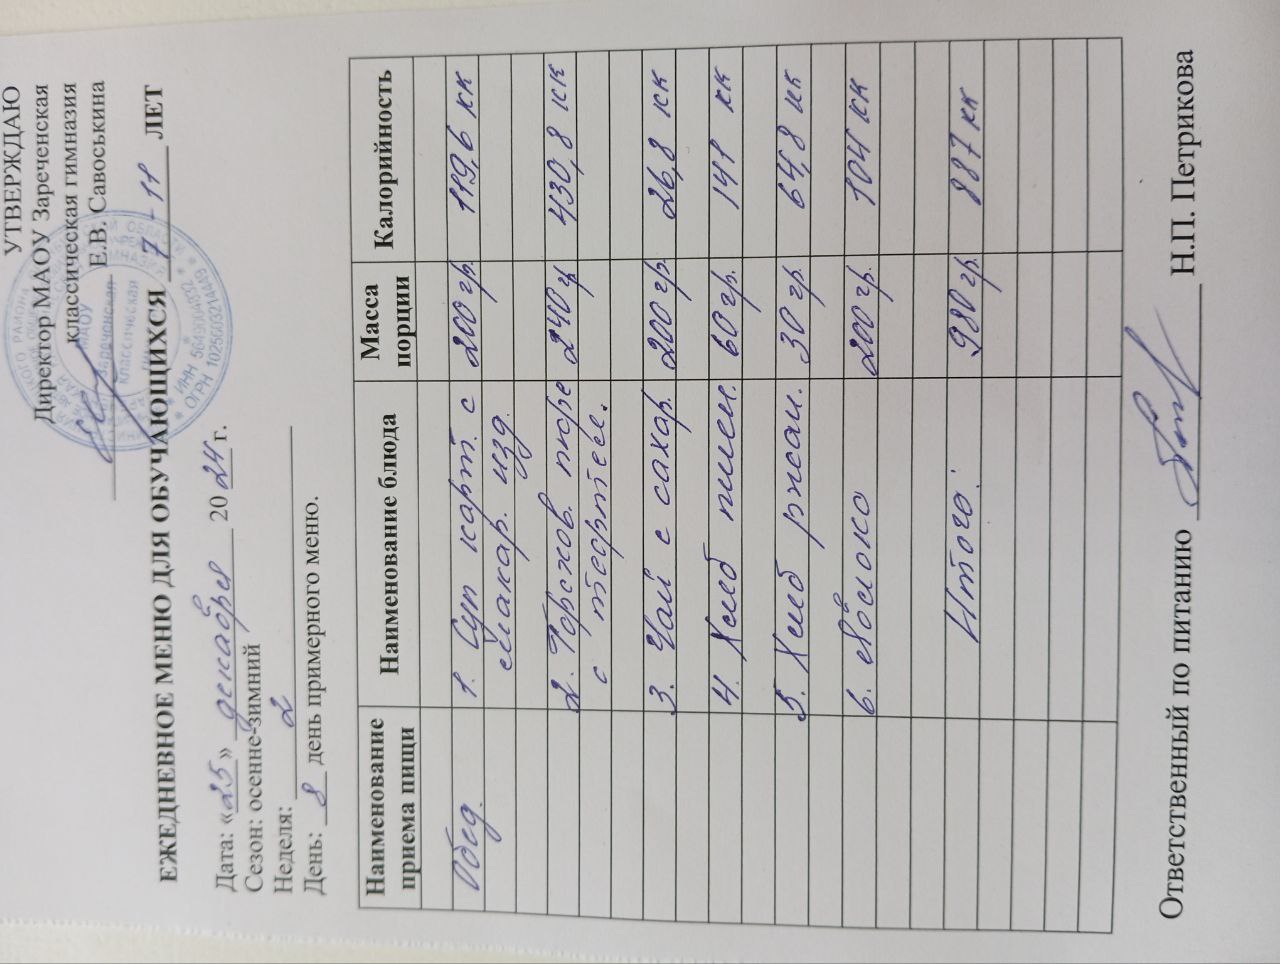 УТВЕРЖДАЮ
Директор МАОУ Зареченская
классическая гимназия
Е.В. Савоськина
ЕЖЕДНЕВНОЕ МЕНЮ ДЛЯ ОБУЧАЮЩИХСЯ 7-11 ЛЕТ
Дата: «25» декабря 2024 г.
Сезон: осенне-зимний
Неделя: 2
День: 8 день примерного меню.
Наименование приема пищи Наименование блюда Масса порции Калорийность
Обед. 1. Суп карт. с 200 гр. 119,6 кк
макар. изд.
2. Горохов. пюре 240 гр 430,8 кк
с тефтел.
3. Чай с сахар. 200 гр. 26,8 кк
4. Хлеб пшен. 60 гр. 141 кк
5. Хлеб ржан. 30 гр. 64,8 кк
6. Яблоко 200 гр. 104 кк
Итого: 980 гр. 887 кк
Ответственный по питанию Н.П. Петрикова